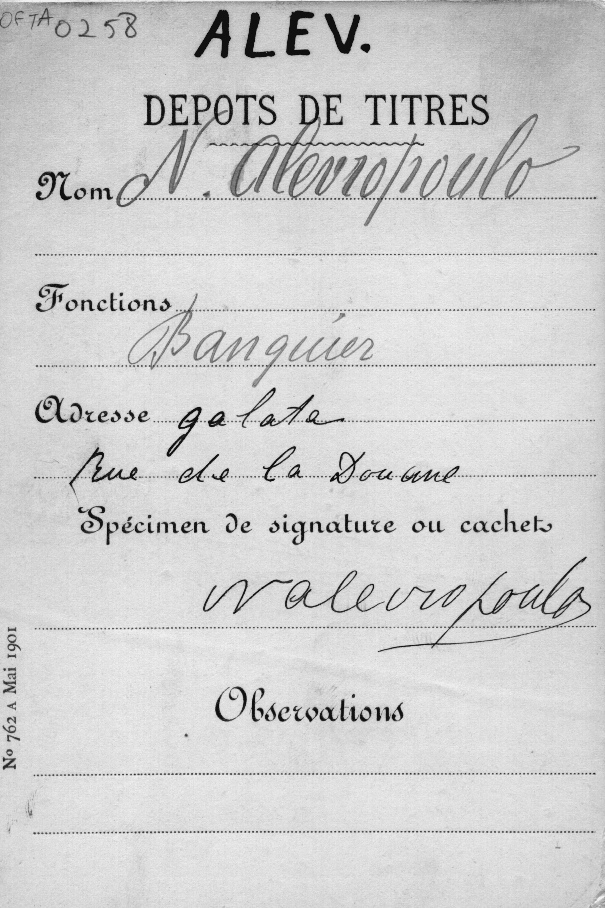 OFTA 0258
ALEV.
DEPOTS DE TITRES
Nom N. Alevropoulo
Fonctions
Banquier
Adresse galata
Rue de la Douane
Spécimen de signature ou cachet
N alevropoulos
Observations
Nº 762 A Mai 1901